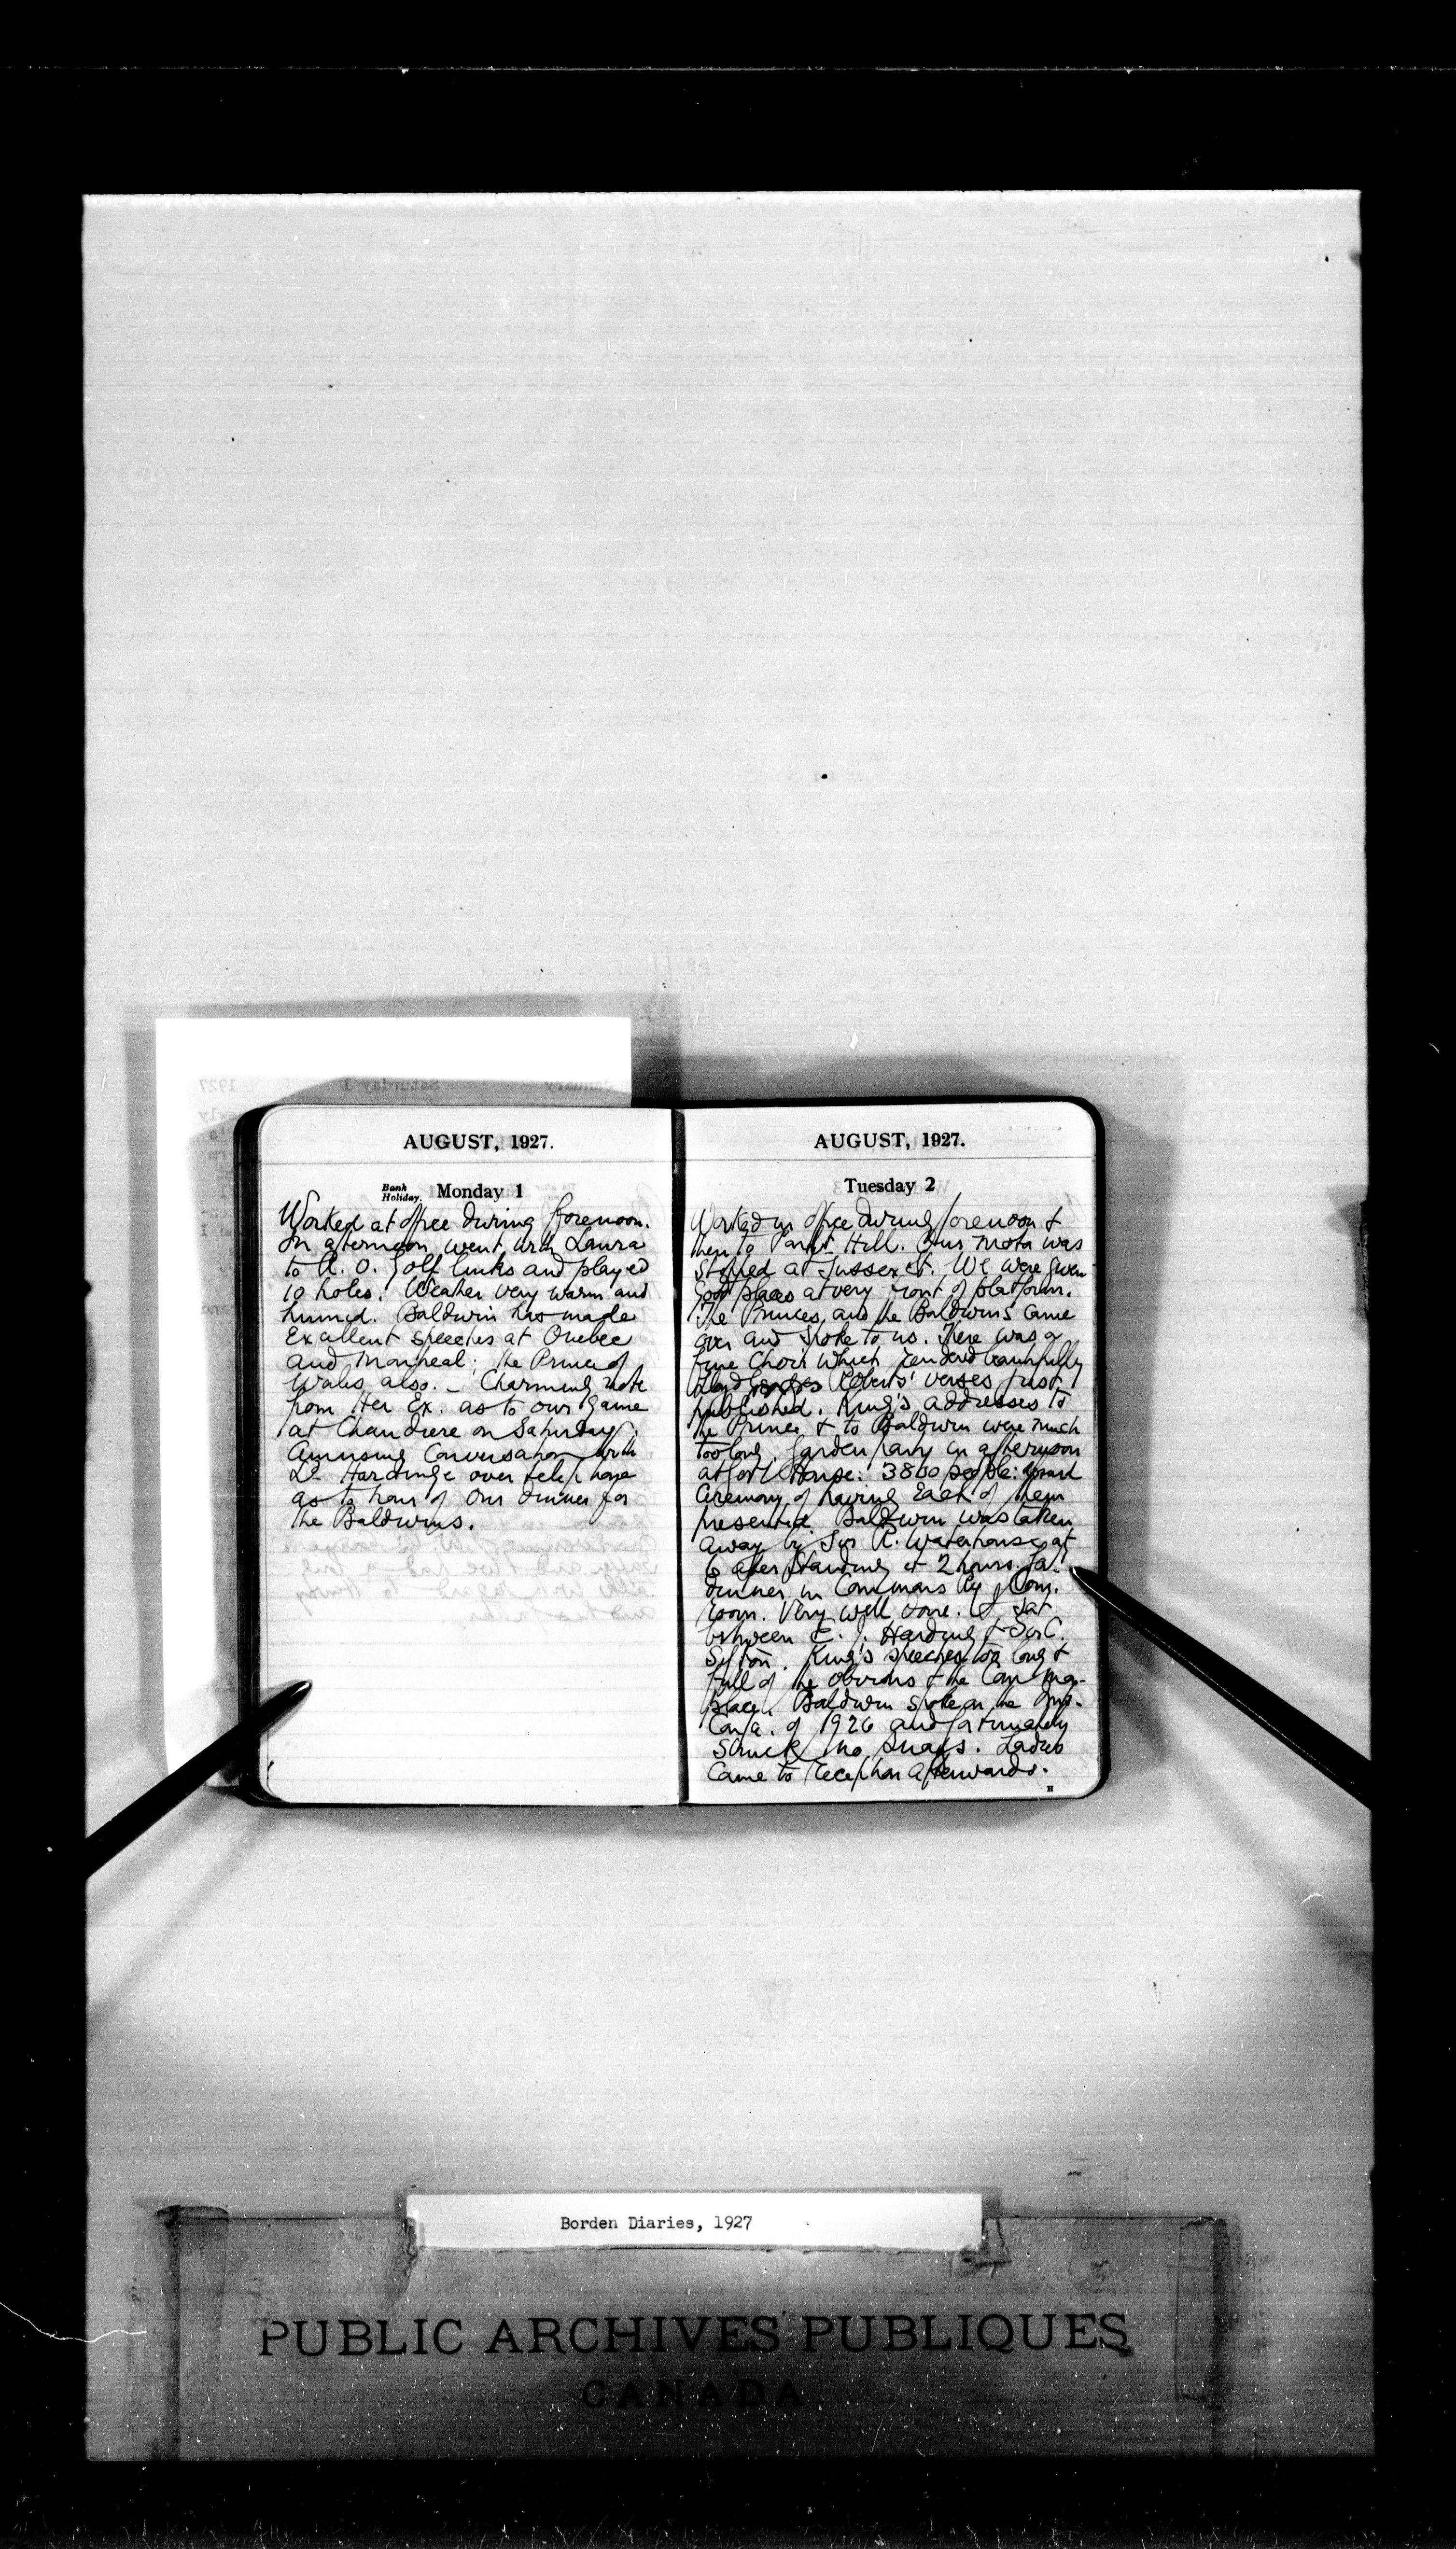 AUGUST, 1927.
Bank Holiday. Monday 1
Worked at office during forenoon.
In afternoon went with Laura
to R. O. Golf links and played
10 holes. Weather very warm and
humid. Baldwin has made
Excellent speeches at Quebec
and Montreal; the Prince of
Wales also. – Charming note
from Her Ex. as to our game
at Chaudiere on Saturday.
Amusing Conversation with
Ld. Hardinge over telephone
as to hour of our dinner for
the Baldwins.
AUGUST, 1927.
Tuesday 2
Worked in office during forenoon &
then to Parlt Hill. Our motor was
stopped at Sussex St. We were given
good places at very front of platform.
The Princes and the Baldwins came
over and spoke to us. There was a
fine Choir which rendered beautifully
Lloyd Roberts' verses just
published. King's addresses to
the Prince & to Baldwin were much
too long. Garden party in afternoon
at Govt House: 3800 people:
Ceremony of having Each of them
presented. Baldwin was taken
away by Sir R. Waterhouse at
6 after standing 2 hours.
dinner in Commons Ry Com.
room. Very well done. I sat
between E. J. Harding & Sir C.
Sifton. King's speeches too long &
full of the obvious & the Common-
place. Baldwin spoke on the Imp.
Confce. of 1926 and fortunately
Struck no snags. Ladies
Came to reception afterwards.
Borden Diaries, 1927
PUBLIC ARCHIVES PUBLIQUES
CANADA